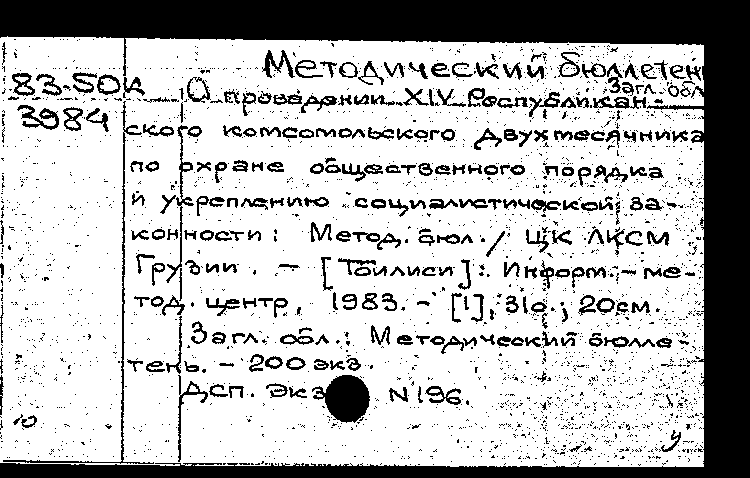 Методический бюллетен
Загл. обл
83-50К
О проведении XIV Республикан-
3984
ского комсомольского двухмесячника
по охране общественного порядка
и укреплению социалистической за-
конности: Метод. бюл. / ЦК ЛКСМ
Грузии. — [Тбилиси]: Информ.-ме-
тод. центр, 1983. - [1], 31с.; 20см.
Загл. обл.: Методический бюлле-
тень. - 200 экз.
ДСП. Экз N 196.
10
у